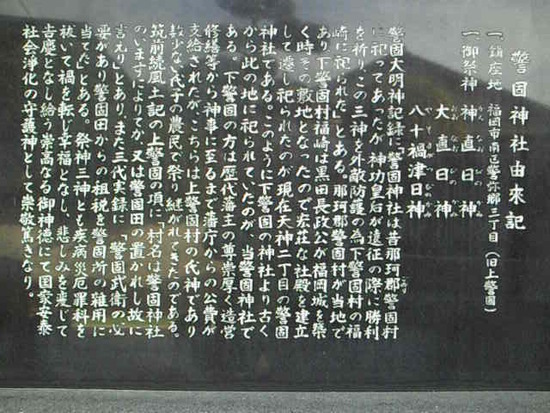 警固神社由来記
一 鎮座地 福岡市南区警弥郷三丁目(旧上警固)
一 御祭神 神直日神
かんなおびのかみ
大直日神
おおなおびのかみ
八十禍津日神
やそまがつひのかみ
警固大明神記録に「警固神社は昔那珂郡警固村
に祀ってあったが神功皇后が遠征の際に勝利
を祈りこの三神を外敵防護の為下警固村の福
崎に祀られた。」とある。那珂郡警固村が当地で
あり下警固村福崎は黒田長政公が福岡城を築
く時その敷地となったので宏荘な社殿を建立
して遷し祀られたのが現在天神二丁目の警固
神社である。このように下警固の神社より古く
から此の地に祀られていたのが、当警固神社で
ある。下警固の方は歴代藩主の尊崇厚く造営
修繕等から神事に至るまで藩庁からの公費が
支給されたが、こちらは上警固村の氏神であり
数少ない氏子の農民で祭り継がれてきたのである。
筑前続風土記の上警固の項に「村名は警固神社
のいますによりてか、又は警固田の置かれし故に
言えり」とあり、また三代実録に「警固武衛の必
要があり警固田からの租税を警固所の雑用に
当てた」とある。祭神三神とも疾病災厄罪科を
祓いて禍を転じ幸福となし、悲しみを変じて
吉慶となし給う崇高なる御神徳にて国家安泰
社会浄化の守護神として崇敬篤きなり。